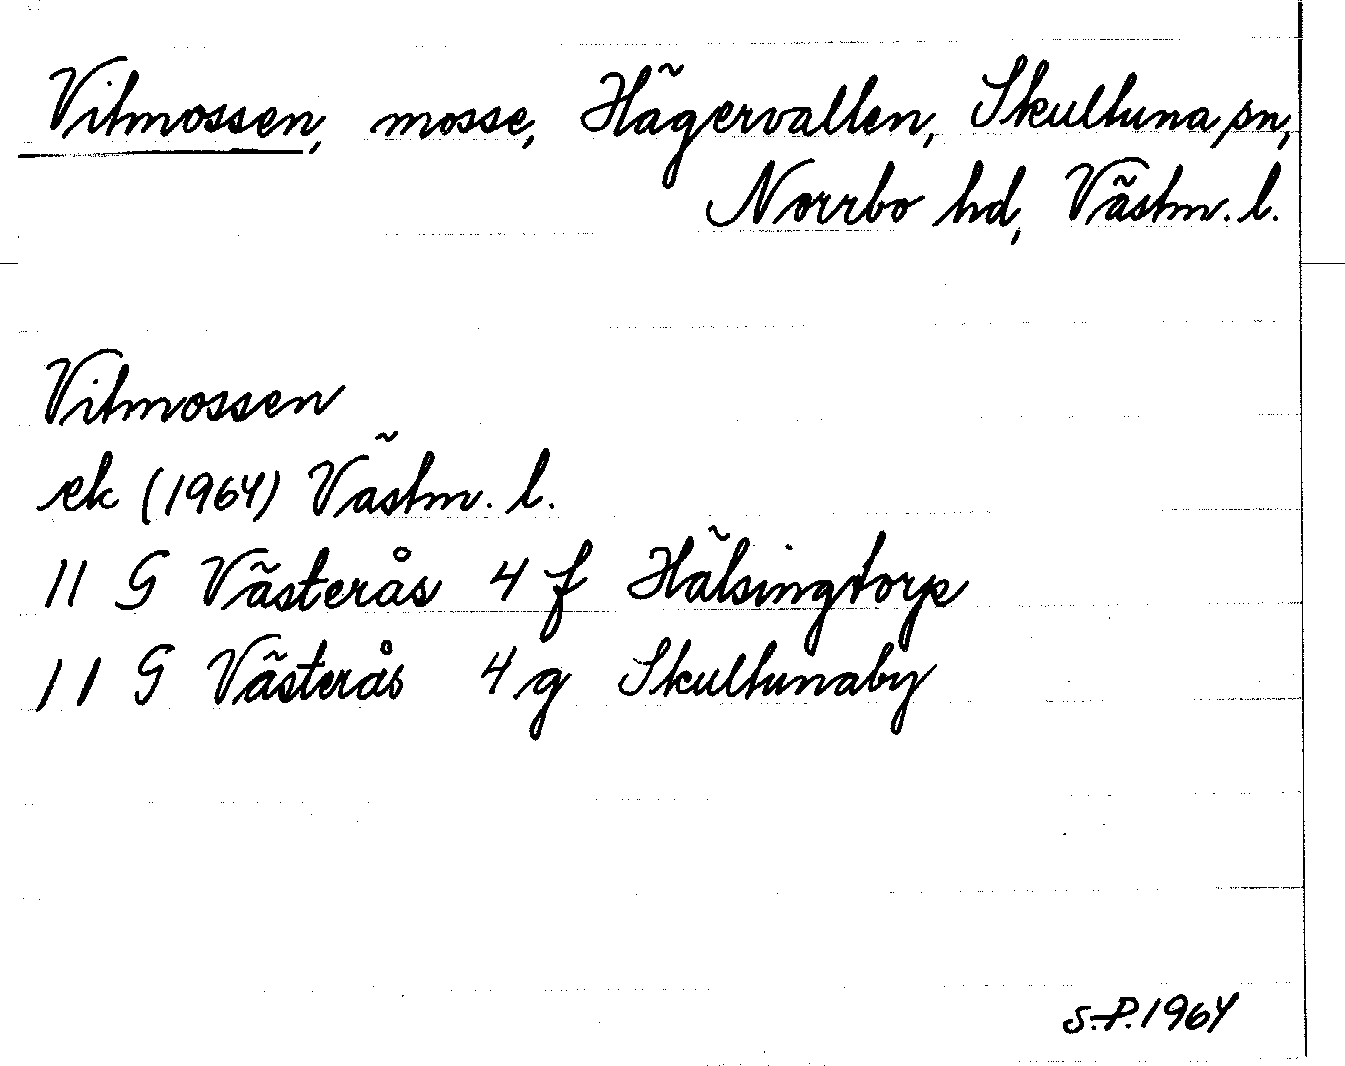 Vitmossen, mosse, Hägervallen, Skultuna sn,
Norrbo hd, Västm. l.
Vitmossen
ek (1964) Västm. l.
11 G Västerås 4 f Hälsingtorp
11 G Västerås 4 g Skultunaby
S.P. 1964